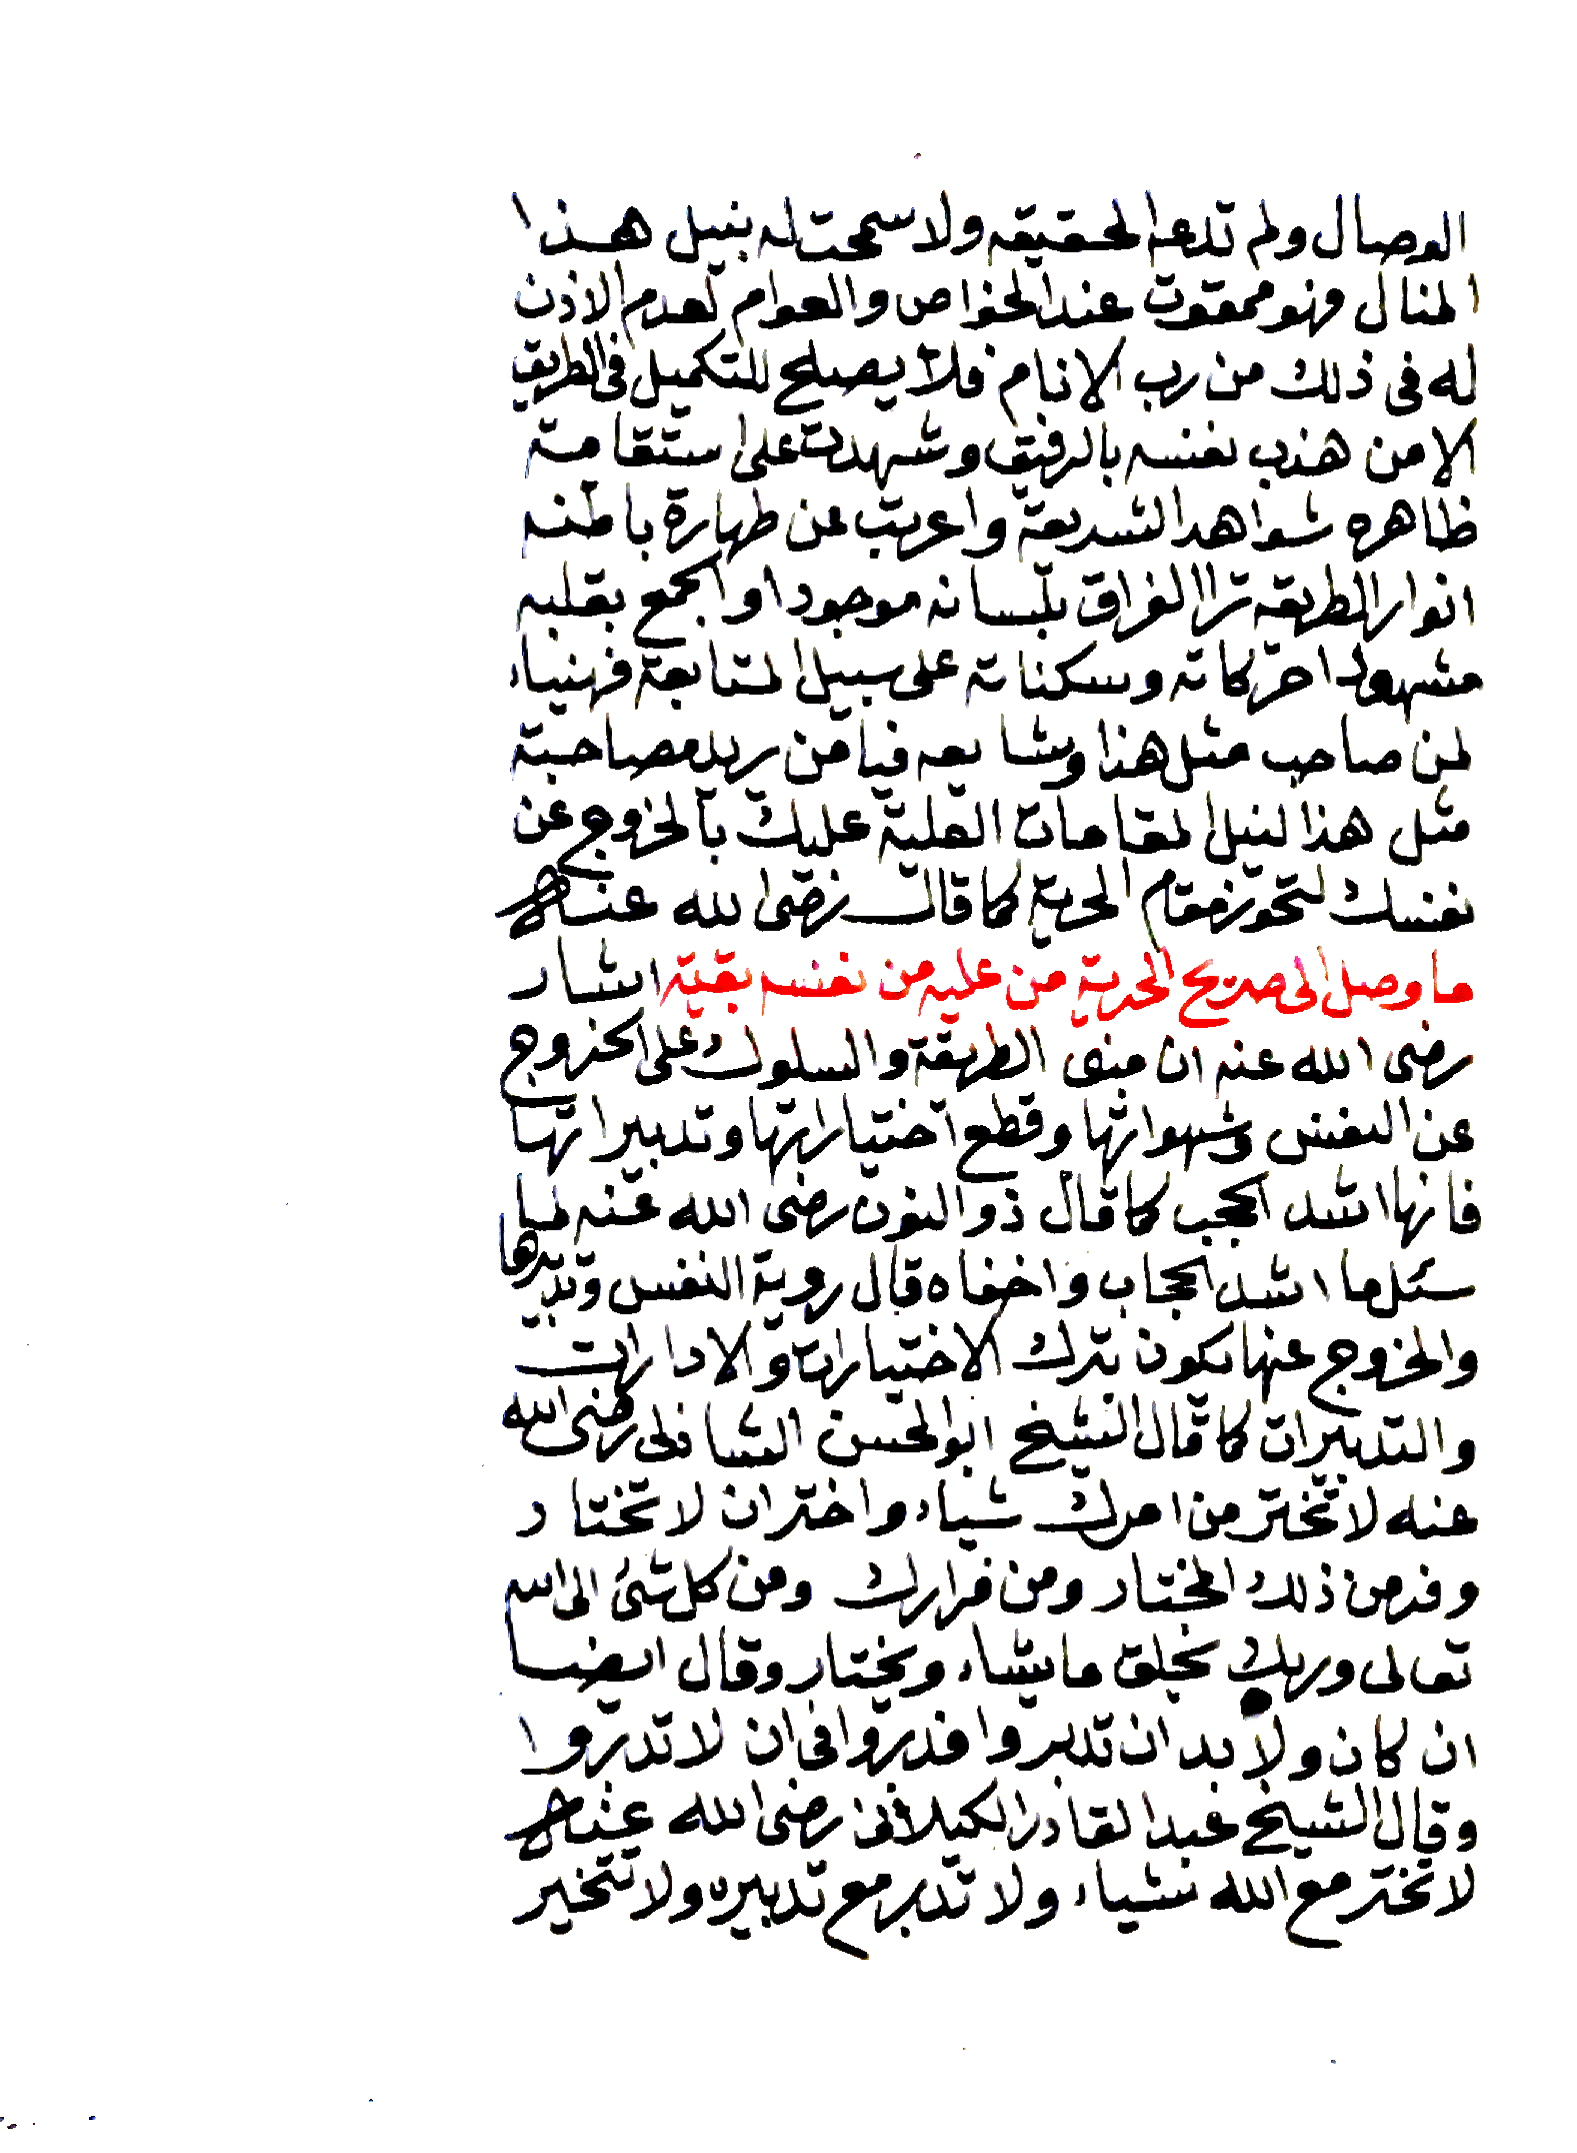 الوصال ولم تدعه الحقيقه ولا سمحت له بنيل هذا
المنال وهو ممقوت عند الخواص والعوام لعدم الاذن
له فى ذلك من رب الانام فلا يصلح للتكميل فى الطريق
الا من هذب نفسه بالرفيق وشهدت على استقامة
ظاهره شواهد الشريعة واعربت عن طهارة باطنه
انوار الطريقه ترا الفراق بلسانه موجودا والجمع بقلبه
مشهودا حركاته وسكناته على سبيل المتابعة فهنياء
لمن صاحب مثل هذا وشايعه فيا من يريد مصاحبة
مثل هذا لنيل المقامات العلية عليك بالخروج عن
نفسك لتحوز مقام الحرية كما قال رضى الله عنه
ما وصل الى صريح الحرية من عليه من نفسه بقية اشار
رضى الله عنه ان مبنى الطريقة والسلوك على الخروج
عن النفس وشهواتها وقطع اختياراتها وتدبيراتها
فانها اشد الحجب كما قال ذو النون رضى الله عنه لما
سئل ما اشد الحجاب واخفاه قال روية النفس وتدبيرها
والخروج عنها يكون بترك الاختيارات والادارات
والتدبيرات كما قال الشيخ ابو الحسن الشاذلى رضى الله
عنه لا تختر من امرك شياء واختر ان لا تختار
وفر من ذلك المختار ومن فرارك ومن كل شئ الى الله
تعالى وربك يخلق ما يشاء ويختار وقال ايضا
ان كان ولا بد ان تدبروا فدبروا فى ان لا تدبروا
وقال الشيخ عبد القادر الكيلانى رضى الله عنه
لا تختر مع الله شياء ولا تدبر مع تدبيره ولا تتخير